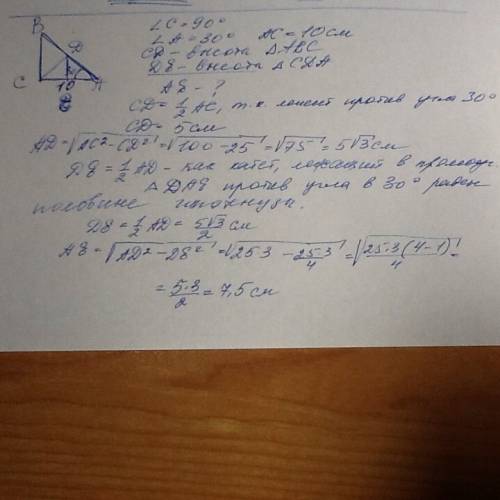 ∠C = 90°
∠A = 30° AC = 10 см
CD - высота △ABC
DE - высота △CDA
AE - ?
B
D
C
10
A
E
CD = 1/2 AC, т.к. лежит против угла 30°
CD = 5 см
AD = √(AC² - CD²) = √(100 - 25) = √75 = 5√3 см
DE = 1/2 AD - как катет, лежащий в прямоуг.
△DAE против угла в 30° равен
половине гипотенузы.
DE = 1/2 AD = 5√3/2 см
AE = √(AD² - DE²) = √(25·3 - 25·3/4) = √(25·3(4-1)/4) =
= 5·3/2 = 7,5 см